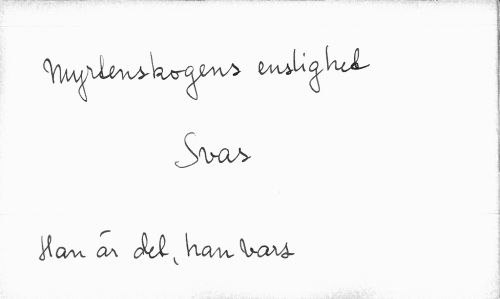 Myrtenskogens enslighet
Svas
Han är det, han vars